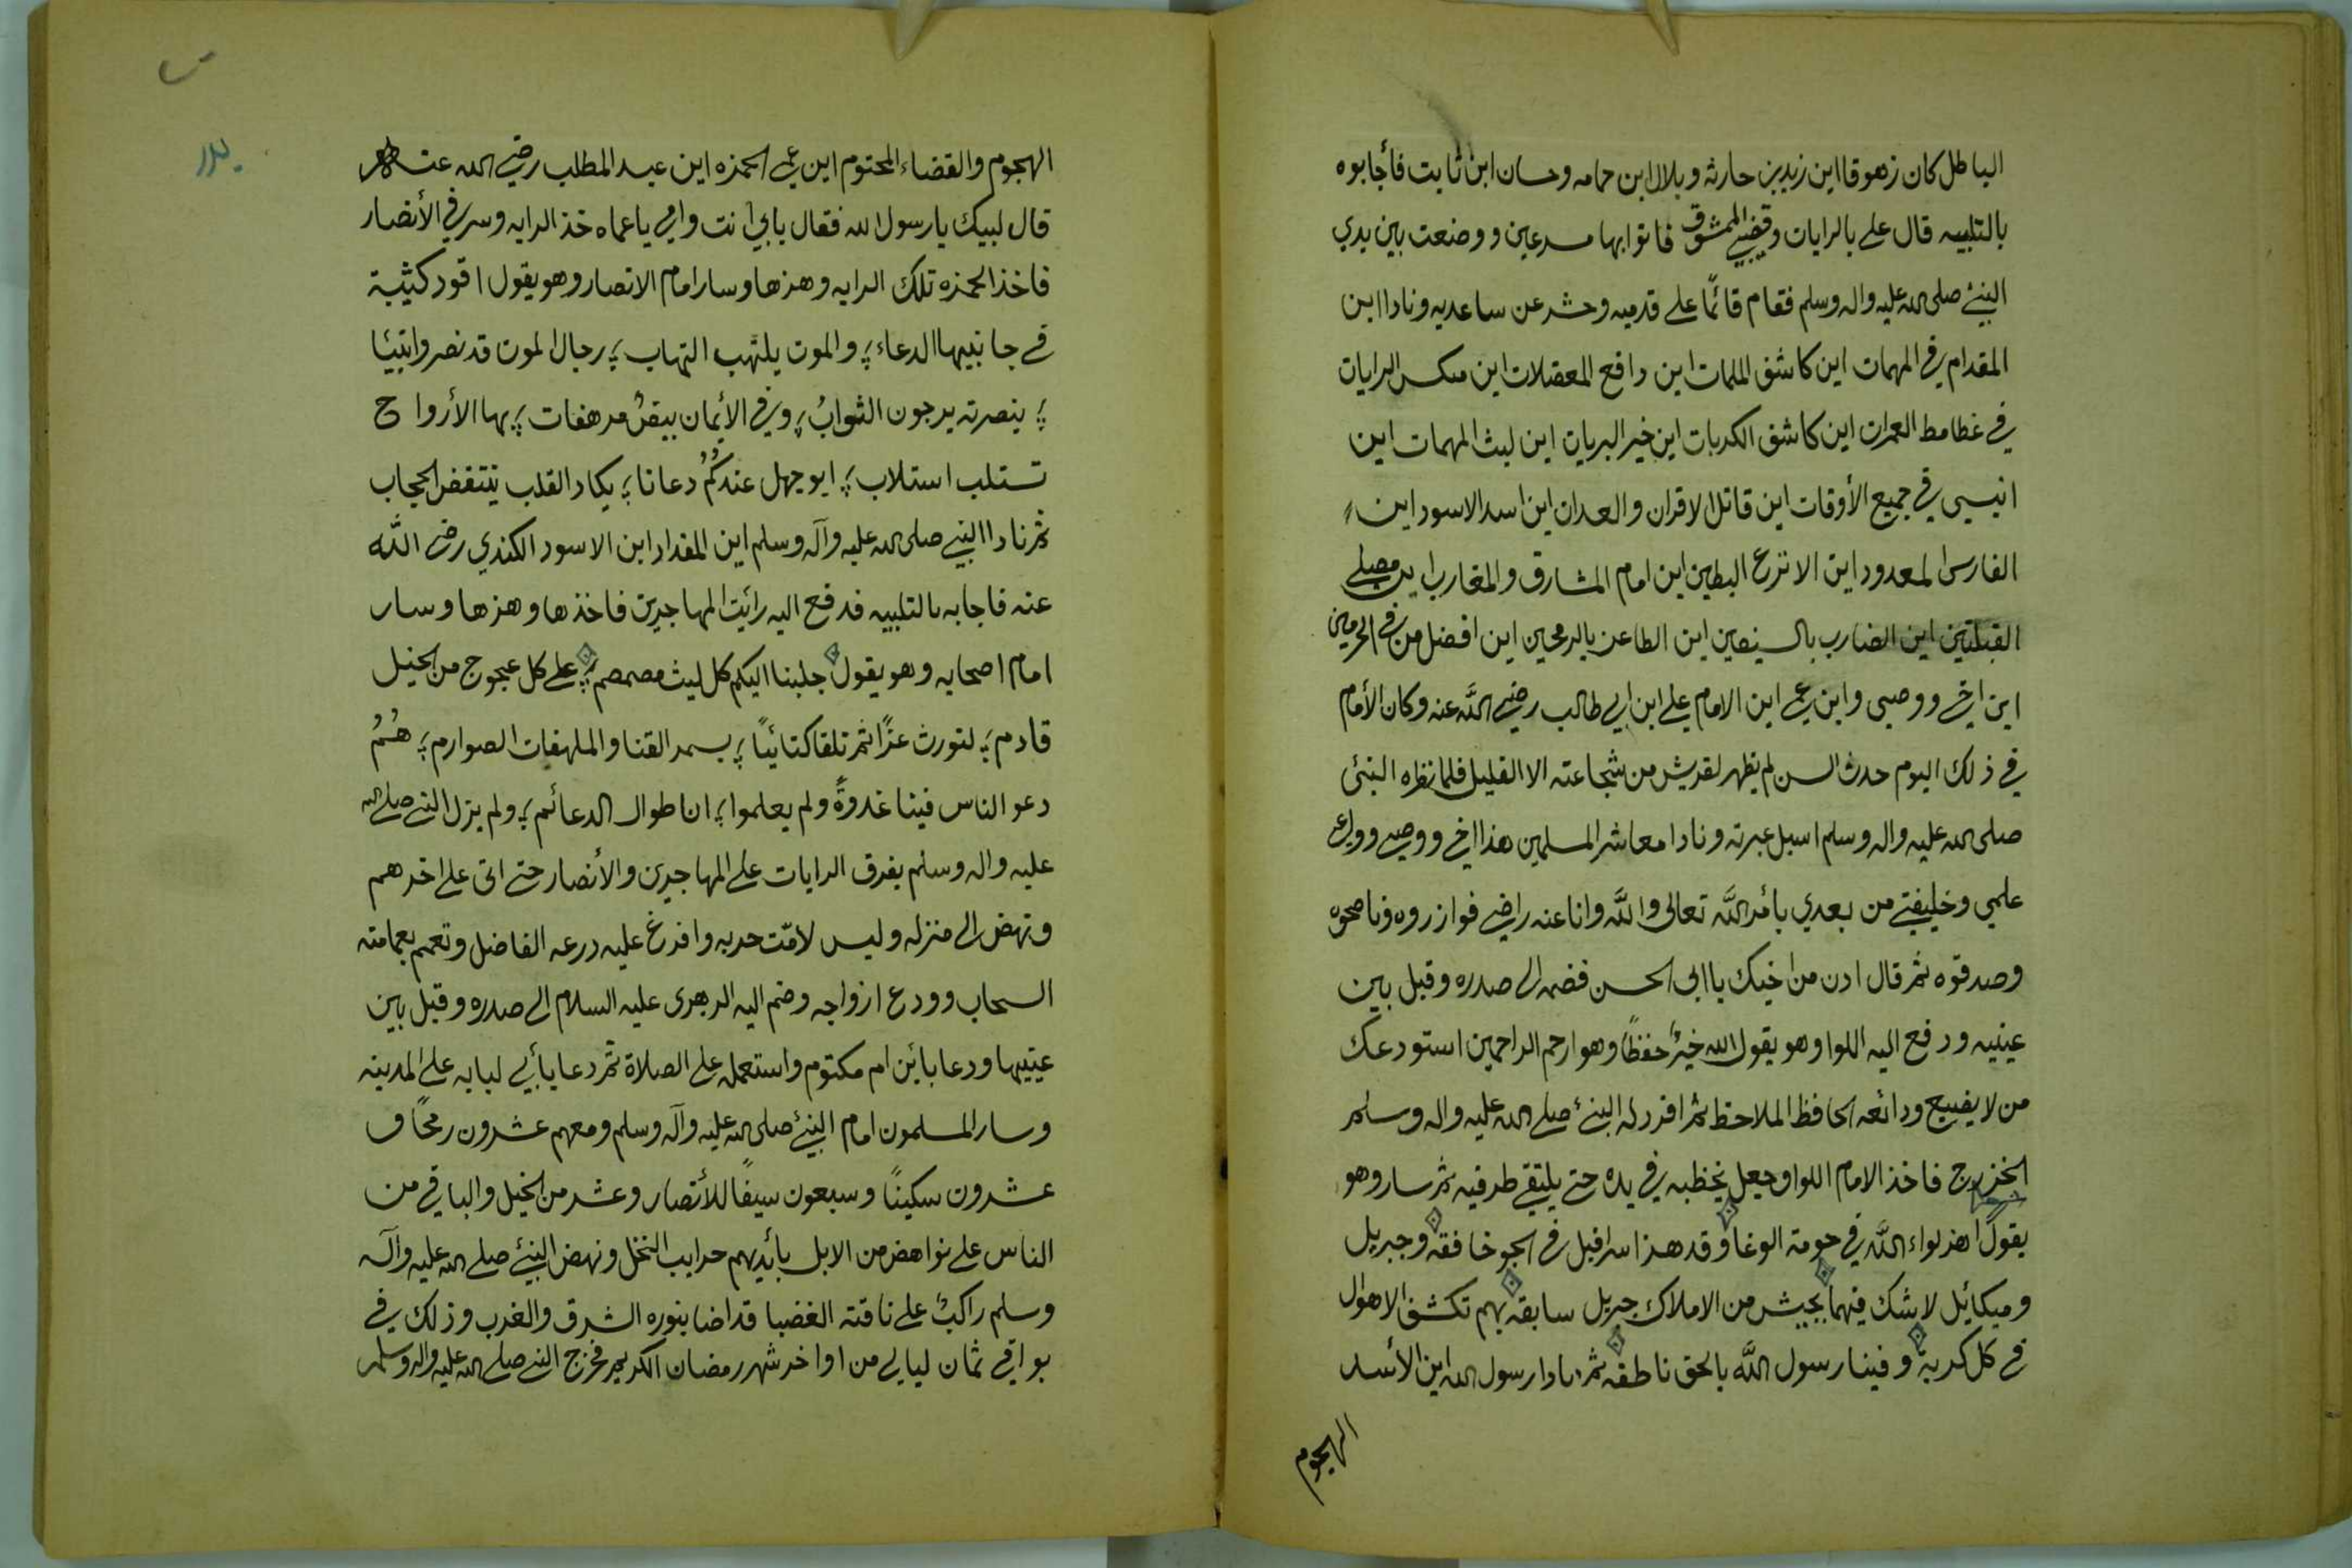 الباطل كان زهوقا اين زيد بن حارثه وبلال ابن حمامه وحسان ابن ثابت فأجابوه
بالتلبيه قال علي بالرايات وقضيبي الممشوق فاتوا بها مسرعين ووضعت بين يدي
النبئ صلى الله عليه واله وسلم فقام قائمًا على قدميه وحشر عن ساعديه ونادا اين
المقدام في المهمات اين كاشف الملمات اين دافع المعضلات اين منكس الرايات
في غطامط الغمرات اين كاشف الكربات اين خير البريات اين ليث المهمات اين
انيسي في جميع الأوقات اين قاتل الاقران والعدان اين اسد الاسود اين
الفارس المعدود اين الانزع البطين اين امام المشارق والمغارب اين مصلي
القبلتين اين الضارب بالسيفين اين الطاعن بالرمحين اين افضل من في الحرمين
اين اخي ووصيي وابن عمي اين الامام علي ابن ابي طالب رضي الله عنه وكان الأمام
في ذلك اليوم حدث السن لم يظهر لقريش من شجاعته الا القليل فلما نظره النبئ
صلى الله عليه واله وسلم اسبل عبرته ونادا معاشر المسلمين هذا اخي ووصيي ووارث
علمي وخليفتي من بعدي بأمر الله تعالى والله وانا عنه راضي فوازروه وناصحوه
وصدقوه ثم قال ادن من اخيك يا ابى الحسن فضمه الى صدره وقبل بين
عينيه ودفع اليه اللوا وهو يقول الله خيرٌ حفظًا وهو ارحم الراحمين استودعك
من لا يضيع ودائعه الحافظ الملاحظ ثم افرد له البنئ صلى الله عليه واله وسلم
الخزرج فاخذ الامام اللوا وجعل يخظبه في يده حتى يلتقي طرفيه ثم سار وهو
يقول اهز لواء الله في حومة الوغا وقد هز اسرافيل في الجو خافقه وجبريل
وميكائيل لا شك فيهما بجيش من الاملاك جبريل سابقه بهم تكشف الاهوال
في كل كربة وفينا رسول الله بالحق ناطقه ثم نادا رسول الله اين الأسد
الهجوم
بدر
الهجوم والقضاء المحتوم اين عمي الحمزه اين عبد المطلب رضي الله عنه
قال لبيك يا رسول الله فقال بابي انت وامي يا عماه خذ الرايه وسر في الأنصار
فاخذ الحمزه تلك الرايه وهزها وسار امام الانصار وهو يقول اقود كثيبة
في جانبيها الدعاء ؛ والموت يلتهب التهاب ؛ رجال الموت قد نصروا نبيئا
؛ بنصرته يرجون الثوابُ ؛ وفي الأيمان بيضٌ مرهفات ؛ بها الأرواح
تستلب استلاب ؛ ابو جهل عندكُمُ دعانا ؛ يكاد القلب ينتفض الحجاب
ثم نادا النبيي صلى الله عليه وآله وسلم اين المقداد ابن الاسود الكندي رضي الله
عنه فاجابه بالتلبيه فدفع اليه رائيت المهاجرين فاخذها وهزها وسار
امام اصحابه وهو يقول جلبنا اليكم كل ليث مصمصم ؛ على كل عجوج من الخيل
قادم ؛ لنورث عزًا ثم تلقا كتائبًا ؛ بسمر القنا والملهفات الصوارم ؛ هُمُ
دعو الناس فينا غدوةً ولم يعلموا ؛ انا طوال الدعائم ؛ ولم يزل النبي صلى الله
عليه واله وسلم يفرق الرايات على المهاجرين والأنصار حتى اتى على اخرهم
ونهض الى منزله ولبس لامّت حربه وافرغ عليه درعه الفاضل وتعمم بعمامته
السحاب وودع ازواجه وضم اليه الزهرى عليه السلام الى صدره وقبل بين
عينيها ودعا بائن ام مكتوم واستعمله على الصلاة ثم دعا يأبي لبابه على المدينه
وسار المسلمون امام النبئ صلى الله عليه وآله وسلم ومعهم عشرون رمحًا و
عشرون سكينًا وسبعون سيفًا للأنصار وعشر من الخيل والباقي من
الناس على نواهض من الابل بأيديهم حرايب النخل ونهض النبئ صلى الله عليه وآله
وسلم راكبٌ على ناقته الغضبا قد اضا بنوره الشرق والغرب وذلك في
بواقي ثمان ليالي من اواخر شهر رمضان الكريم فخرج النبي صلى الله عليه واله وسلم